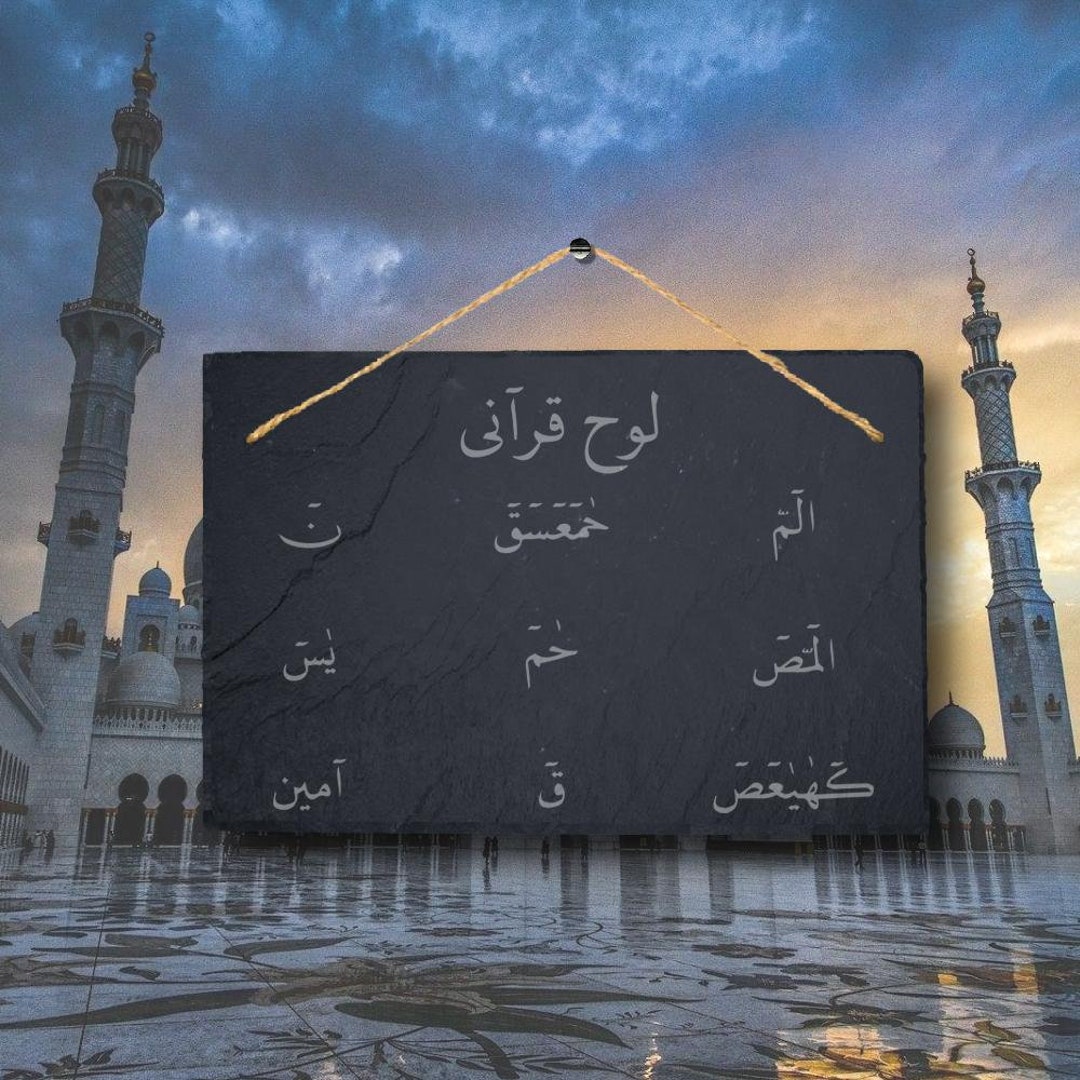 لوح قرآنی
الٓمّٓ حٰمٓعٓسٓقٓ نٓ
الٓمّٓصٓ حٰمٓ يٰسٓ
كٓهٰيٰعٓصٓ قٓ آمین